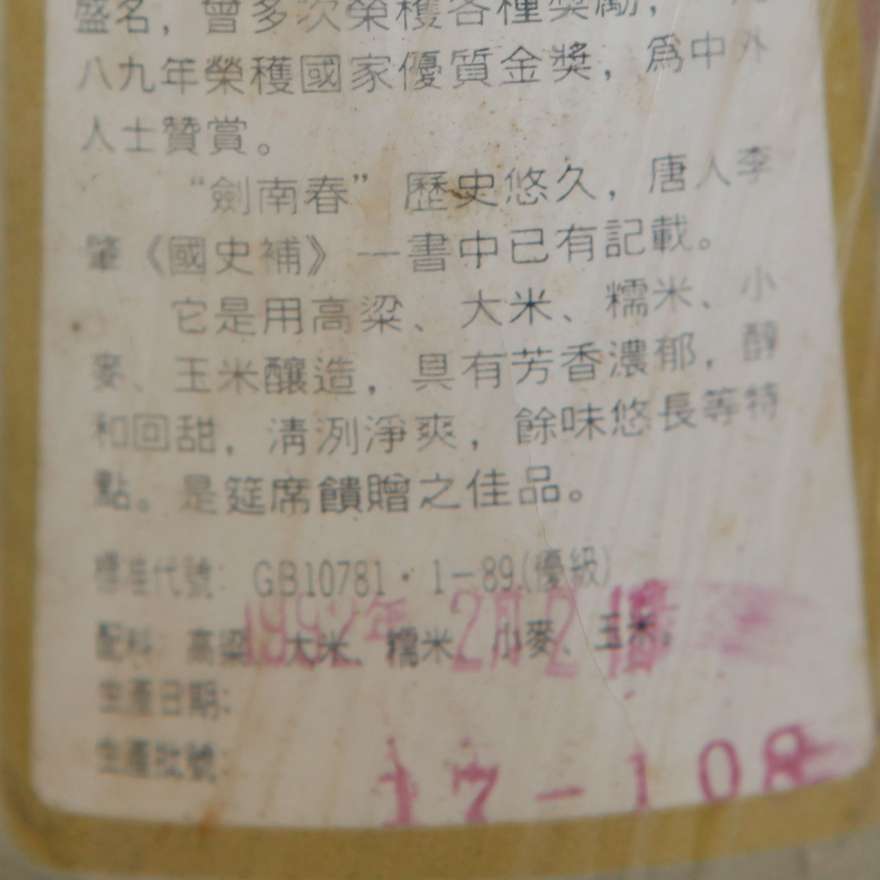 盛名，曾多次榮獲各種獎勵，
八九年榮獲國家優質金獎，爲中外
人士贊賞。
“劍南春”歷史悠久，唐人李
肇《國史補》一書中已有記載。
它是用高粱、大米、糯米、小
麥、玉米釀造，具有芳香濃郁，醇
和回甜，清洌淨爽，餘味悠長等特
點。是筵席饋贈之佳品。
標准代號：GB10781·1-89(優級)
1992年2月2
配料：高粱、大米、糯米、小麥、玉米。
生產日期：
生產批號：
17-108